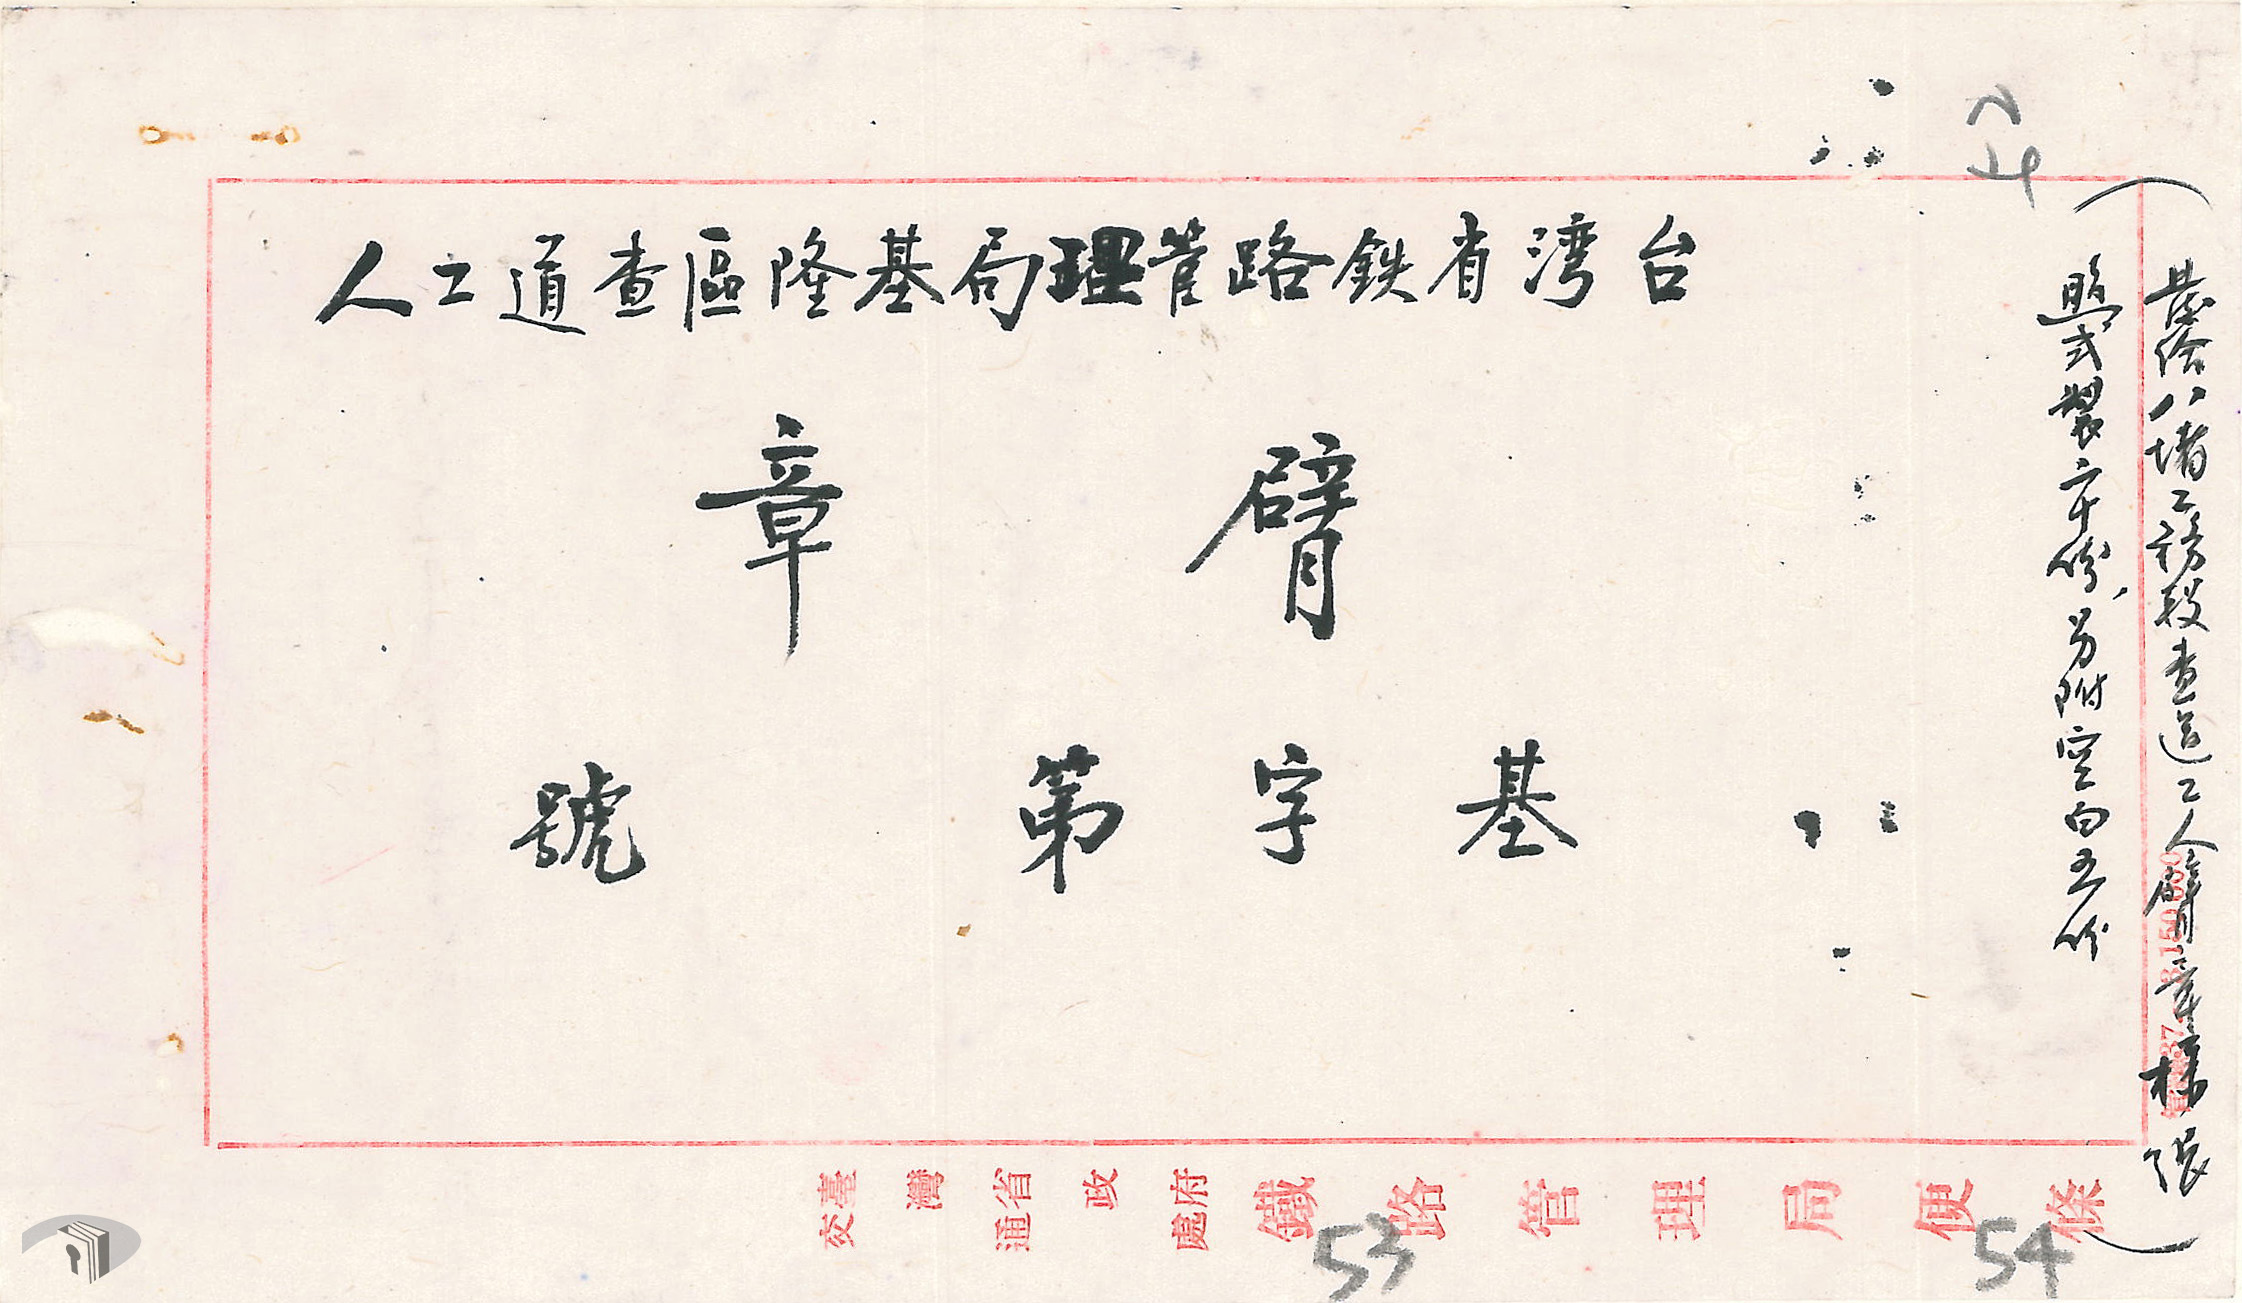 台湾省鉄路管理局基隆區查道工人
臂章
基字第號
發給八堵工務段查道工人臂章樣張
照式製六十份,另附空白五份
臺灣省政府
交通處
鐵路管理局便條
53
54